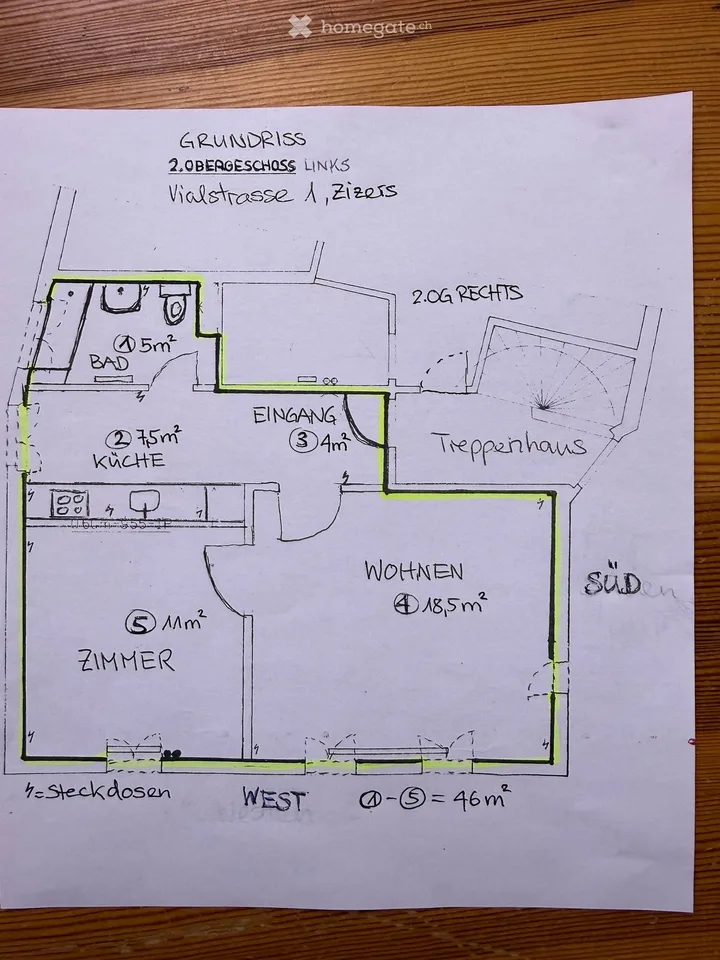 homegate.ch
GRUNDRISS
2.OBERGESCHOSS LINKS
Vialstrasse 1, Zizers
2.OG RECHTS
① 5m²
BAD
EINGANG
③ 4m²
② 7,5m²
KÜCHE
Treppenhaus
WOHNEN
④ 18,5m²
SÜD
⑤ 11m²
ZIMMER
ϟ=steckdosen
WEST
①-⑤ = 46m²